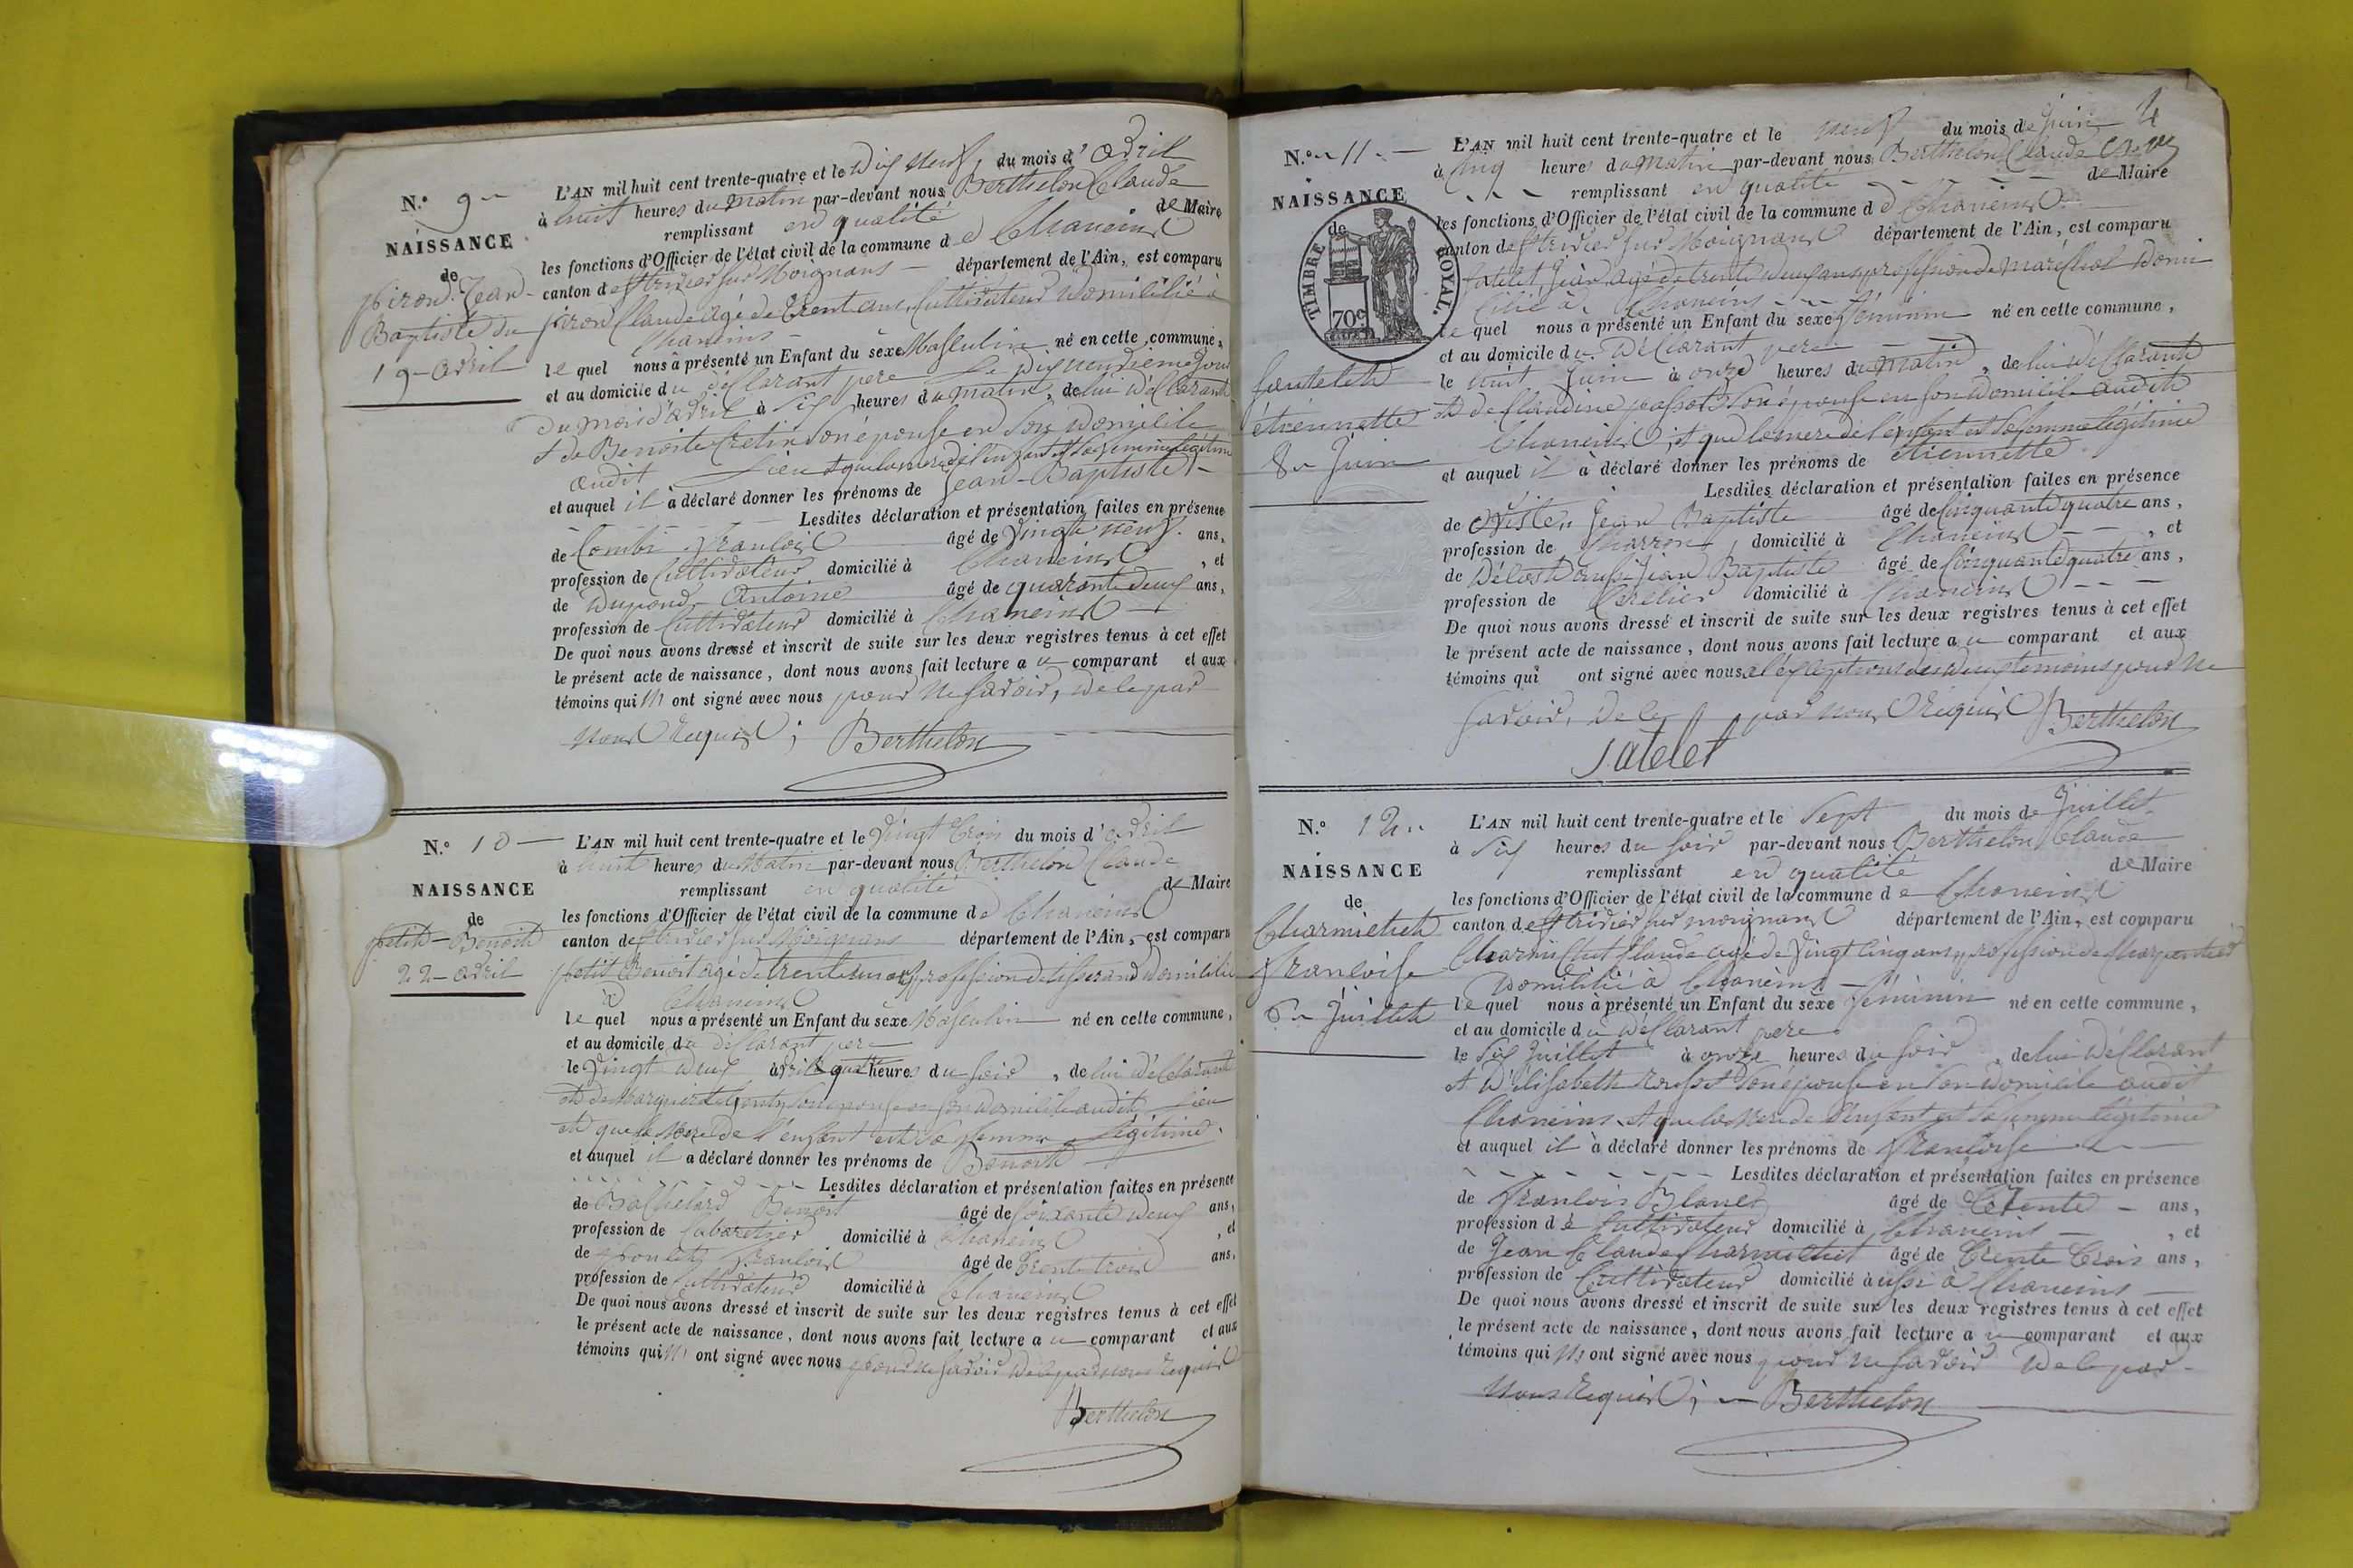 N.º 9
NAISSANCE
de
piron Jean
Baptiste du
19 avril
L'AN mil huit cent trente-quatre et le Dix neuf, du mois d'avril
à huit heures du matin par-devant nous Berthelon Claude
remplissant en qualité de Maire
les fonctions d'Officier de l'état civil de la commune de Chaneins
canton de st trivier sur Moignans département de l'Ain, est comparu
piron Claude agé de trent ans, Cultivateur Domicilié à
Chaneins
le quel nous à présenté un Enfant du sexe Masculin né en cette commune,
et au domicile du déclarant père le dix neuvieme jour
du mois d'avril à six heures du matin, de lui déclarant
et de Benoite Cretin son épouse en son domicile
audit lieu et que la mere de l'enfant est sa femme légitime
et auquel il à déclaré donner les prénoms de Jean-Baptiste
Lesdites déclaration et présentation faites en présence
de Combi françois âgé de Vingt neuf ans,
profession de Cultivateur domicilié à Chaneins, et
de Dupond Antoine âgé de quarante deux ans,
profession de Cultivateur domicilié à Chaneins
De quoi nous avons dressé et inscrit de suite sur les deux registres tenus à cet effet
le présent acte de naissance, dont nous avons fait lecture au comparant et aux
témoins qui n'ont signé avec nous pour ne savoir, de le par
nous Requis; Berthelon
N.º 10
NAISSANCE
de
petit Benoit
22 avril
L'AN mil huit cent trente-quatre et le Vingt trois du mois d'avril
à huit heures du Matin par-devant nous Berthelon Claude
remplissant en qualité de Maire
les fonctions d'Officier de l'état civil de la commune de Chaneins
canton de st trivier sur Moignans département de l'Ain, est comparu
petit Benoit agé de trente ans profession de tisserand domicilié
à Chaneins
le quel nous a présenté un Enfant du sexe Masculin né en cette commune,
et au domicile du déclarant père
le Vingt deux avril à quatre heures du soir, de lui déclarant
et de Marguerite son épouse en son domicile audit lieu
et que la Mere de l'enfant est sa femme légitime.
et auquel il a déclaré donner les prénoms de Benoit
Lesdites déclaration et présentation faites en présence
de Bachelard Benoit âgé de soixante deux ans,
profession de Cabaretier domicilié à Chaneins, et
de françois âgé de trente trois ans,
profession de Cultivateur domicilié à Chaneins
De quoi nous avons dressé et inscrit de suite sur les deux registres tenus à cet effet
le présent acte de naissance, dont nous avons fait lecture au comparant et aux
témoins qui n'ont signé avec nous pour ne savoir de le par nous requis
Berthelon
4
N.º 11
NAISSANCE
de
TIMBRE ROYAL.
70c
étiennette
8 Juin
L'AN mil huit cent trente-quatre et le neuf du mois de juin
à Cinq heures du matin par-devant nous Berthelon Claude
remplissant en qualité de Maire
les fonctions d'Officier de l'état civil de la commune de Chaneins
canton de st trivier sur Moignans département de l'Ain, est comparu
Jean, agé de trente deux ans profession de Maréchal Domi
cilié à Chaneins
le quel nous a présenté un Enfant du sexe féminin né en cette commune,
et au domicile du Déclarant père
le huit Juin à onze heures du matin, de lui déclarant
et de Claudine son épouse en son domicile audit
Chaneins, et que la mere de l'enfant est sa femme légitime
et auquel il à déclaré donner les prénoms de étiennette.
Lesdites déclaration et présentation faites en présence
de Jean Baptiste âgé de Cinquante quatre ans,
profession de Charron, domicilié à Chaneins, et
de Jean Baptiste âgé de Cinquante quatre ans,
profession de domicilié à Chaneins
De quoi nous avons dressé et inscrit de suite sur les deux registres tenus à cet effet
le présent acte de naissance, dont nous avons fait lecture au comparant et aux
témoins qui ont signé avec nous à l'exception des deux temoins pour ne
savoir, de le par nous Requis Berthelon
N.º 12
NAISSANCE
de
Charmichet
françoise
6 Juillet
L'AN mil huit cent trente-quatre et le Sept du mois de Juillet
à Six heures du soir par-devant nous Berthelon Claude
remplissant en qualité de Maire
les fonctions d'Officier de l'état civil de la commune de Chaneins
canton de st trivier sur moignans département de l'Ain, est comparu
Charmichet Claude agé de Vingt Cinq ans profession de Charpentier
Domicilié à Chaneins
le quel nous à présenté un Enfant du sexe féminin né en cette commune,
et au domicile du déclarant père
le Six Juillet à onze heures du soir, de lui déclarant
et D'élisabeth rousset son épouse en son domicile audit
Chaneins et que la Mere de l'enfant est sa femme légitime
et auquel il à déclaré donner les prénoms de françoise
Lesdites déclaration et présentation faites en présence
de françois Blanc âgé de trente ans,
profession de Cultivateur domicilié à Chaneins, et
de Jean Claude Charmichet âgé de trente trois ans,
profession de Cultivateur domicilié aussi à Chaneins
De quoi nous avons dressé et inscrit de suite sur les deux registres tenus à cet effet
le présent acte de naissance, dont nous avons fait lecture au comparant et aux
témoins qui n'ont signé avec nous pour ne savoir de le par
nous requis; Berthelon